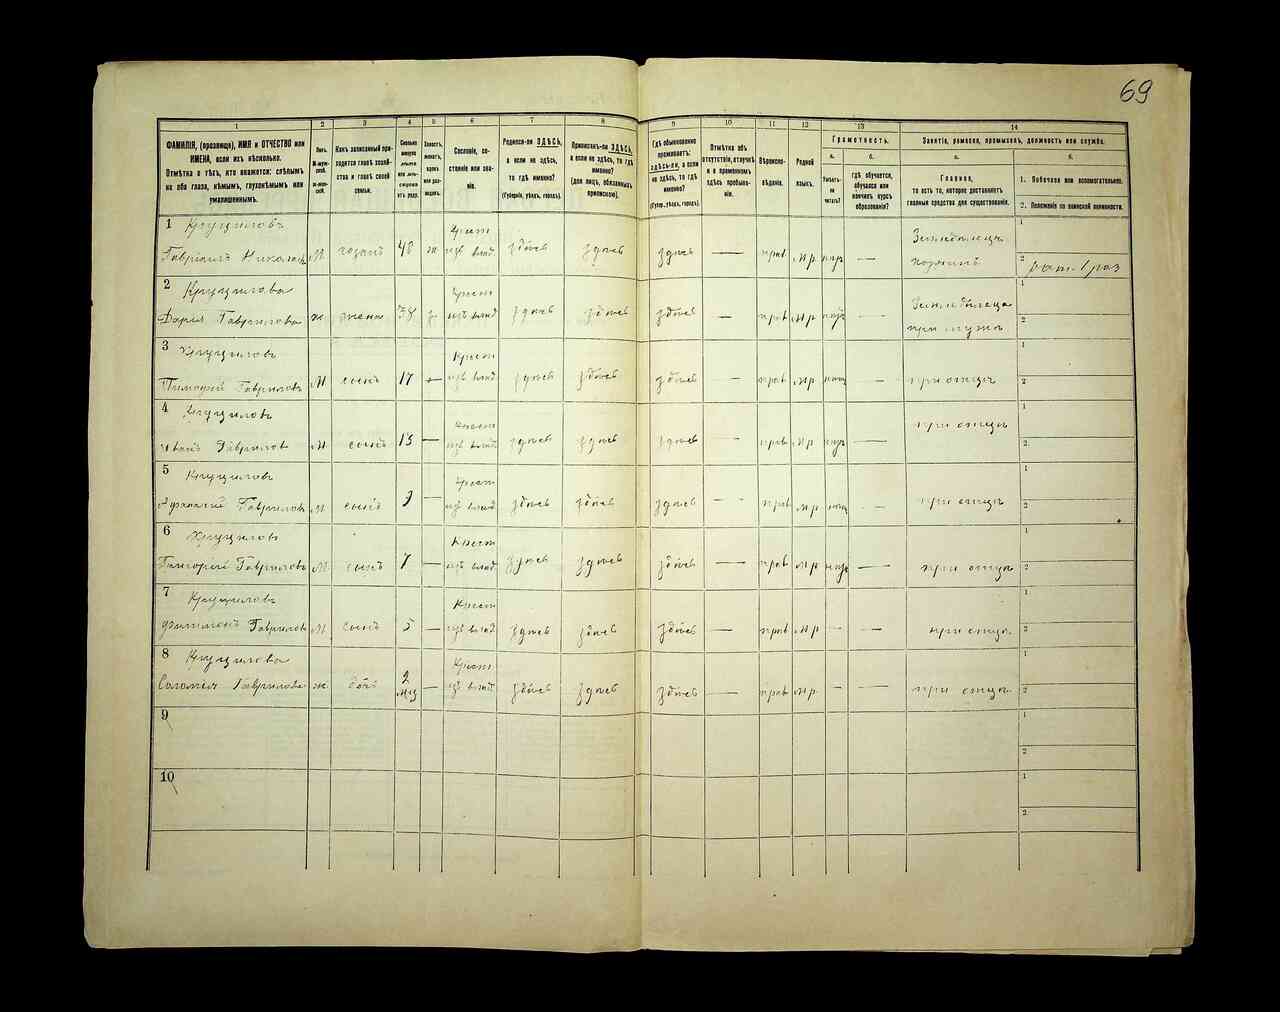 69
1 2 3 4 5 6 7 8 9 10 11 12 13 14
ФАМИЛІЯ, (прозвище), ИМЯ и ОТЧЕСТВО или ИМЕНА, если ихъ нѣсколько.
Отмѣтка о тѣхъ, кто окажется: слѣпымъ на оба глаза, нѣмымъ, глухонѣмымъ или умалишеннымъ.
Полъ.
М-муж-ской.
Ж-жен-скій.
Какъ записанный приходится главѣ хозяйства и главѣ своей семьи.
Сословіе, состояніе или званіе.
Родился-ли ЗДѢСЬ, а если не здѣсь, то гдѣ именно?
(Губернія, уѣздъ, городъ).
Приписанъ-ли ЗДѢСЬ, а если не здѣсь, то гдѣ именно?
(для лицъ, обязанныхъ припискою).
Гдѣ обыкновенно проживаетъ: здѣсь-ли, а если не здѣсь, то гдѣ именно?
(Губерн., уѣздъ, городъ).
Отмѣтка объ отсутствіи, отлучкѣ и о временномъ здѣсь пребываніи.
Вѣроисповѣданіе.
Родной языкъ.
Грамотность.
а. б.
Умѣетъ-ли читать?
гдѣ обучается, обучался или кончилъ курсъ образованія?
Занятіе, ремесло, промыселъ, должность или служба.
а. б.
Главное,
то есть то, которое доставляетъ главныя средства для существованія.
1. Побочное или вспомогательное.
2. Положеніе по воинской повинности.
1 Круциловъ
Гавріилъ Николаевъ М 48 ж Крест. изъ влад. здѣсь здѣсь здѣсь — прав м р — Земледѣлецъ
1
2 рат. 1 раз
2 Круцилова
Дарья Гаврилова ж жена 38 Крест. изъ влад. здѣсь здѣсь здѣсь — прав м р — Земледѣлица при мужѣ
1
2
3 Круциловъ
Тимофей Гавриловъ М сынъ 17 — Крест. изъ влад. здѣсь здѣсь здѣсь — прав м р — при отцѣ
1
2
4 Круциловъ
Иванъ Гавриловъ М сынъ 13 — Крест. изъ влад. здѣсь здѣсь здѣсь — прав м р — при отцѣ
1
2
5 Круциловъ
Афанасій Гавриловъ М сынъ 9 — Крест. изъ влад. здѣсь здѣсь здѣсь — прав м р — при отцѣ
1
2
6 Круциловъ
Григорій Гавриловъ М сынъ 7 — Крест. изъ влад. здѣсь здѣсь здѣсь — прав м р — при отцѣ
1
2
7 Круциловъ
Филимонъ Гавриловъ М сынъ 5 — Крест. изъ влад. здѣсь здѣсь здѣсь — прав м р — — при отцѣ
1
2
8 Круцилова
Соломія Гаврилова ж дочь 2 мц — Крест. изъ влад. здѣсь здѣсь здѣсь — прав м р — — при отцѣ
1
2
9
1
2
10
1
2